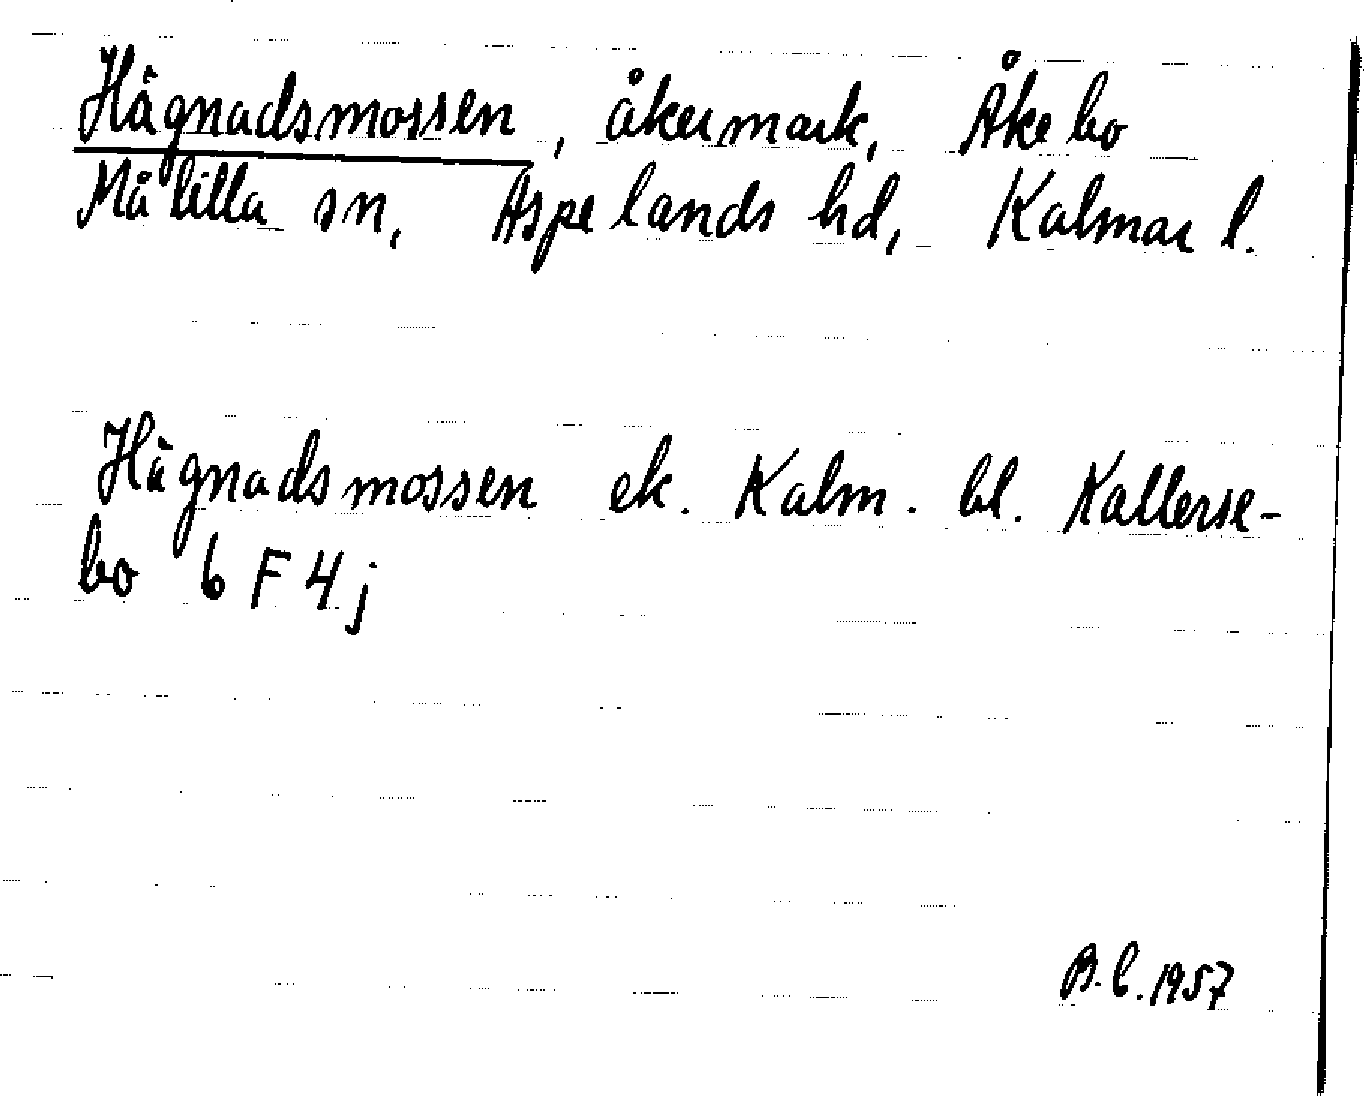 Hägnadsmossen, åkermark, Åkebo
Målilla sn, Aspelands hd, Kalmar l.
Hägnadsmossen ek. Kalm. bl. Kallerse-
bo 6 F 4 j
B.C. 1957